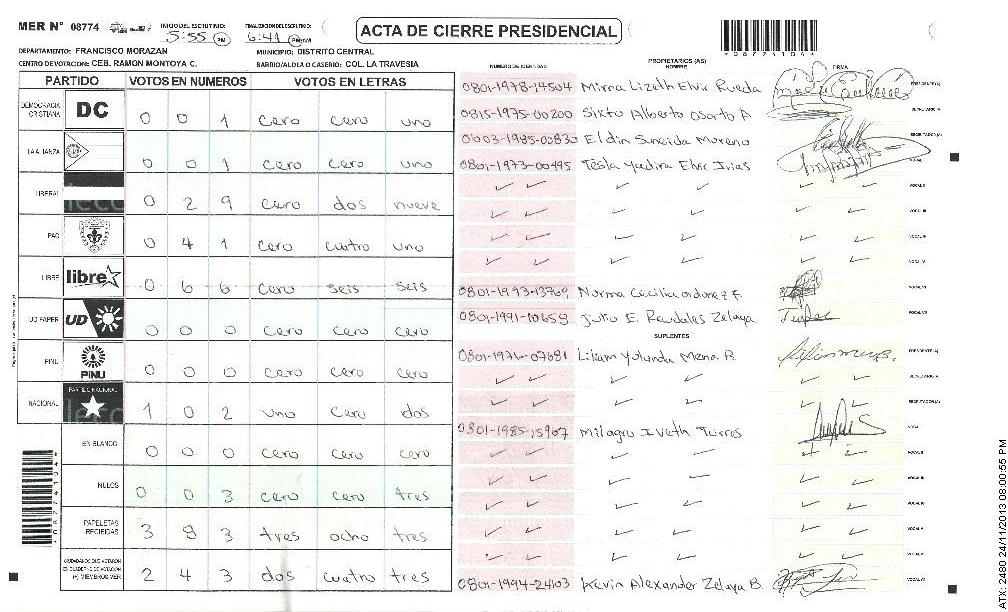 MER N° 08774 INICIO DEL ESCRUTINIO: 5:55 PM FINALIZACION DEL ESCRUTINIO: 6:41 PM ACTA DE CIERRE PRESIDENCIAL
DEPARTAMENTO: FRANCISCO MORAZAN MUNICIPIO: DISTRITO CENTRAL
CENTRO DE VOTACION: CEB. RAMON MONTOYA C. BARRIO/ALDEA O CASERIO: COL. LA TRAVESIA
PARTIDO VOTOS EN NUMEROS VOTOS EN LETRAS
DEMOCRACIA CRISTIANA DC 0 0 1 cero cero uno
LA ALIANZA 0 0 1 cero cero uno
LIBERAL 0 2 9 cero dos nueve
PAC 0 4 1 cero cuatro uno
LIBRE libre 0 6 6 cero seis seis
UD FAPER UD 0 0 0 cero cero cero
PINU PINU 0 0 0 cero cero cero
NACIONAL PARTIDO NACIONAL 1 0 2 uno cero dos
EN BLANCO 0 0 0 cero cero cero
NULOS 0 0 3 cero cero tres
PAPELETAS RECIBIDAS 3 8 3 tres ocho tres
CIUDADANOS QUE VOTARON EN CUADERNO DE VOTACION (+) MIEMBROS MER 2 4 3 dos cuatro tres
NUMERO DE IDENTIDAD PROPIETARIOS (AS) NOMBRE FIRMA
0801-1978-14504 Mirna Lizeth Elvir Rueda PRESIDENTE (A)
0815-1975-00200 Sixto Alberto Osorto A SECRETARIO (A)
0603-1985-00830 Eldin Suneida Moreno ESCRUTADOR (A)
0801-1973-00495 Tesla Yadira Elvir Irias VOCAL I
VOCAL II
VOCAL III
VOCAL IV
VOCAL V
0801-1993-13769 Norma Cecilia ordoñez F. VOCAL VI
0801-1991-10659 Julio E. Raudales Zelaya VOCAL VII
SUPLENTES
0801-1976-07681 Liliam Yolanda Mena B. PRESIDENTE (A)
SECRETARIO (A)
ESCRUTADOR (A)
0801-1985-15907 Milagro Iveth Torres VOCAL I
VOCAL II
VOCAL III
VOCAL IV
VOCAL V
VOCAL VI
0801-1994-24103 Kevin Alexander Zelaya B. VOCAL VII
ATX: 2480 24/11/2013 08:00:55 PM